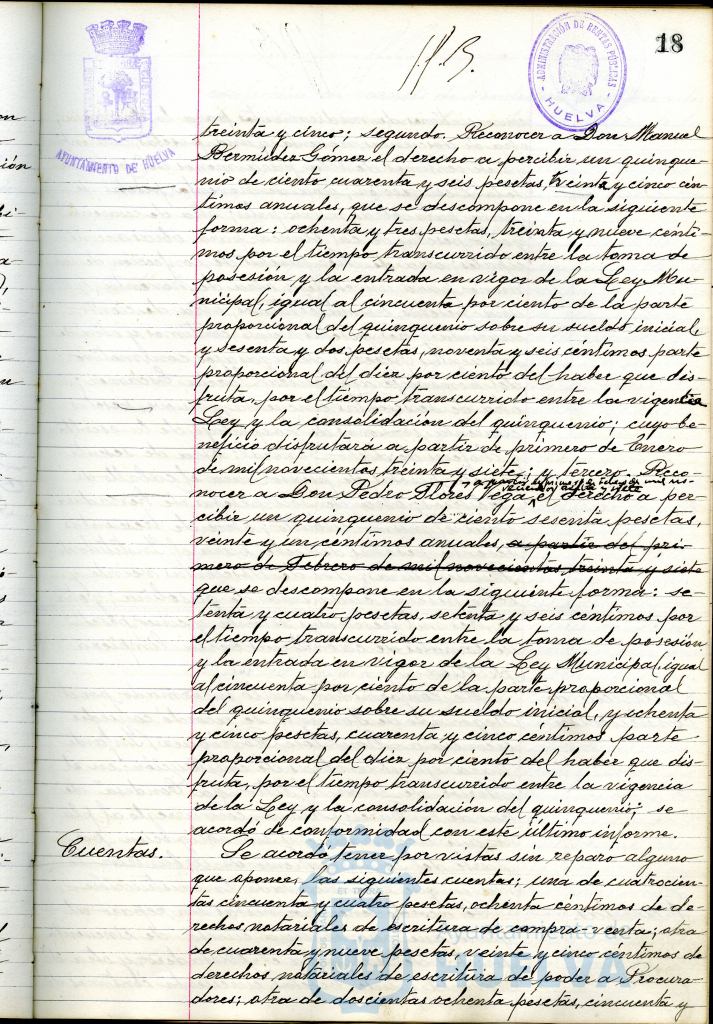 18
ADMINISTRACIÓN DE RENTAS PÚBLICAS
HUELVA
AYUNTAMIENTO DE HUELVA
treinta y cinco; segundo. Reconocer a Don Manuel
Bermúdez Gómez el derecho a percibir un quinque-
nio de ciento cuarenta y seis pesetas, treinta y cinco cén-
timos anuales, que se descompone en la siguiente
forma: ochenta y tres pesetas, treinta y nueve cénti-
mos por el tiempo transcurrido entre la toma de
posesión y la entrada en vigor de la Ley Mu-
nicipal, igual al cincuenta por ciento de la parte
proporcional del quinquenio sobre su sueldo inicial,
y sesenta y dos pesetas, noventa y seis céntimos parte
proporcional del diez por ciento del haber que dis-
fruta, por el tiempo transcurrido entre la vigencia
Ley y la consolidación del quinquenio; cuyo be-
neficio disfrutará a partir de primero de Enero
de mil novecientos treinta y siete; y tercero. Reco-
nocer a Don Pedro Flores Vega, el derecho a per-
cibir un quinquenio de ciento sesenta pesetas,
veinte y un céntimos anuales, a partir del pri-
mero de Febrero de mil novecientos treinta y siete
que se descompone en la siguiente forma: se-
tenta y cuatro pesetas, setenta y seis céntimos por
el tiempo transcurrido entre la toma de posesión
y la entrada en vigor de la Ley Municipal, igual
al cincuenta por ciento de la parte proporcional
del quinquenio sobre su sueldo inicial, y ochenta
y cinco pesetas, cuarenta y cinco céntimos parte
proporcional del diez por ciento del haber que dis-
fruta, por el tiempo transcurrido entre la vigencia
de la Ley y la consolidación del quinquenio; se
acordó de conformidad con este último informe.
Cuentas. Se acordó tener por vistas sin reparo alguno
que oponer, las siguientes cuentas; una de cuatrocien-
tas cincuenta y cuatro pesetas, ochenta céntimos de de-
rechos notariales de escritura de compra-venta; otra
de cuarenta y nueve pesetas, veinte y cinco céntimos de
derechos notariales de escritura de poder a Procura-
dores; otra de doscientas ochenta pesetas, cincuenta y